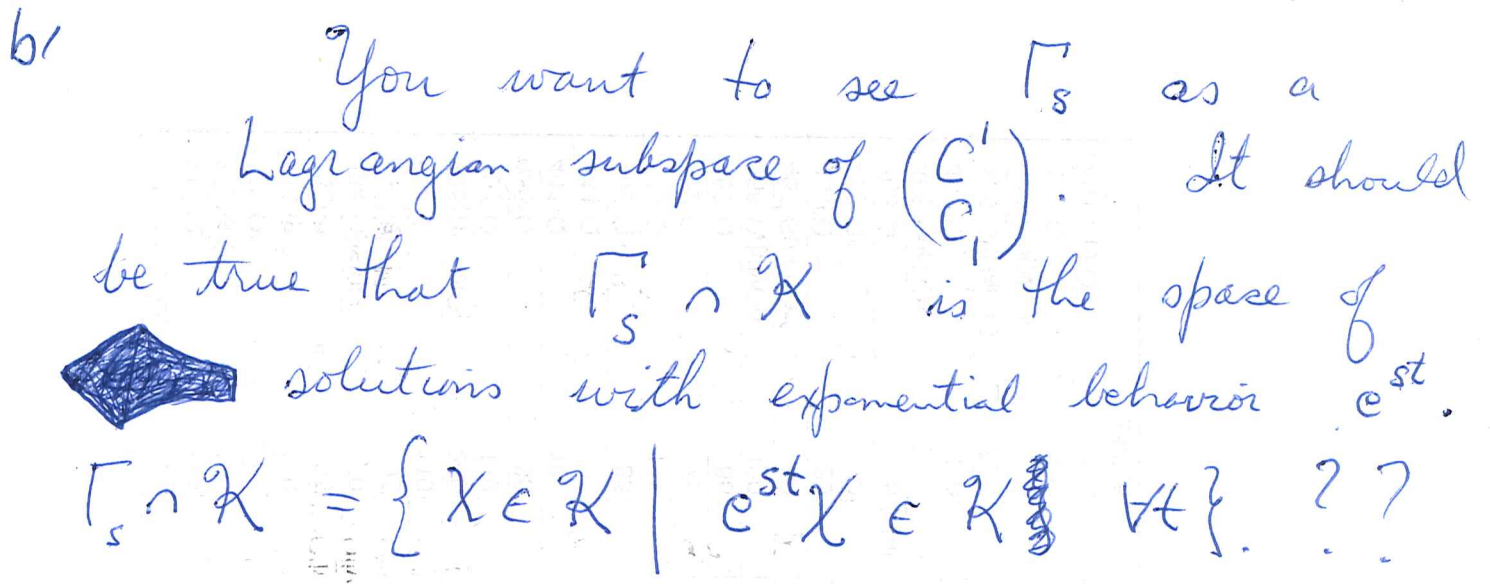 b'
You want to see Γ_s as a
Lagrangian subspace of (C^1 C_1). It should
be true that Γ_s ∩ K is the space of
solutions with exponential behavior e^{st}.
Γ_s ∩ K = {X ∈ K | e^{st}X ∈ K ∀t}. ? ?